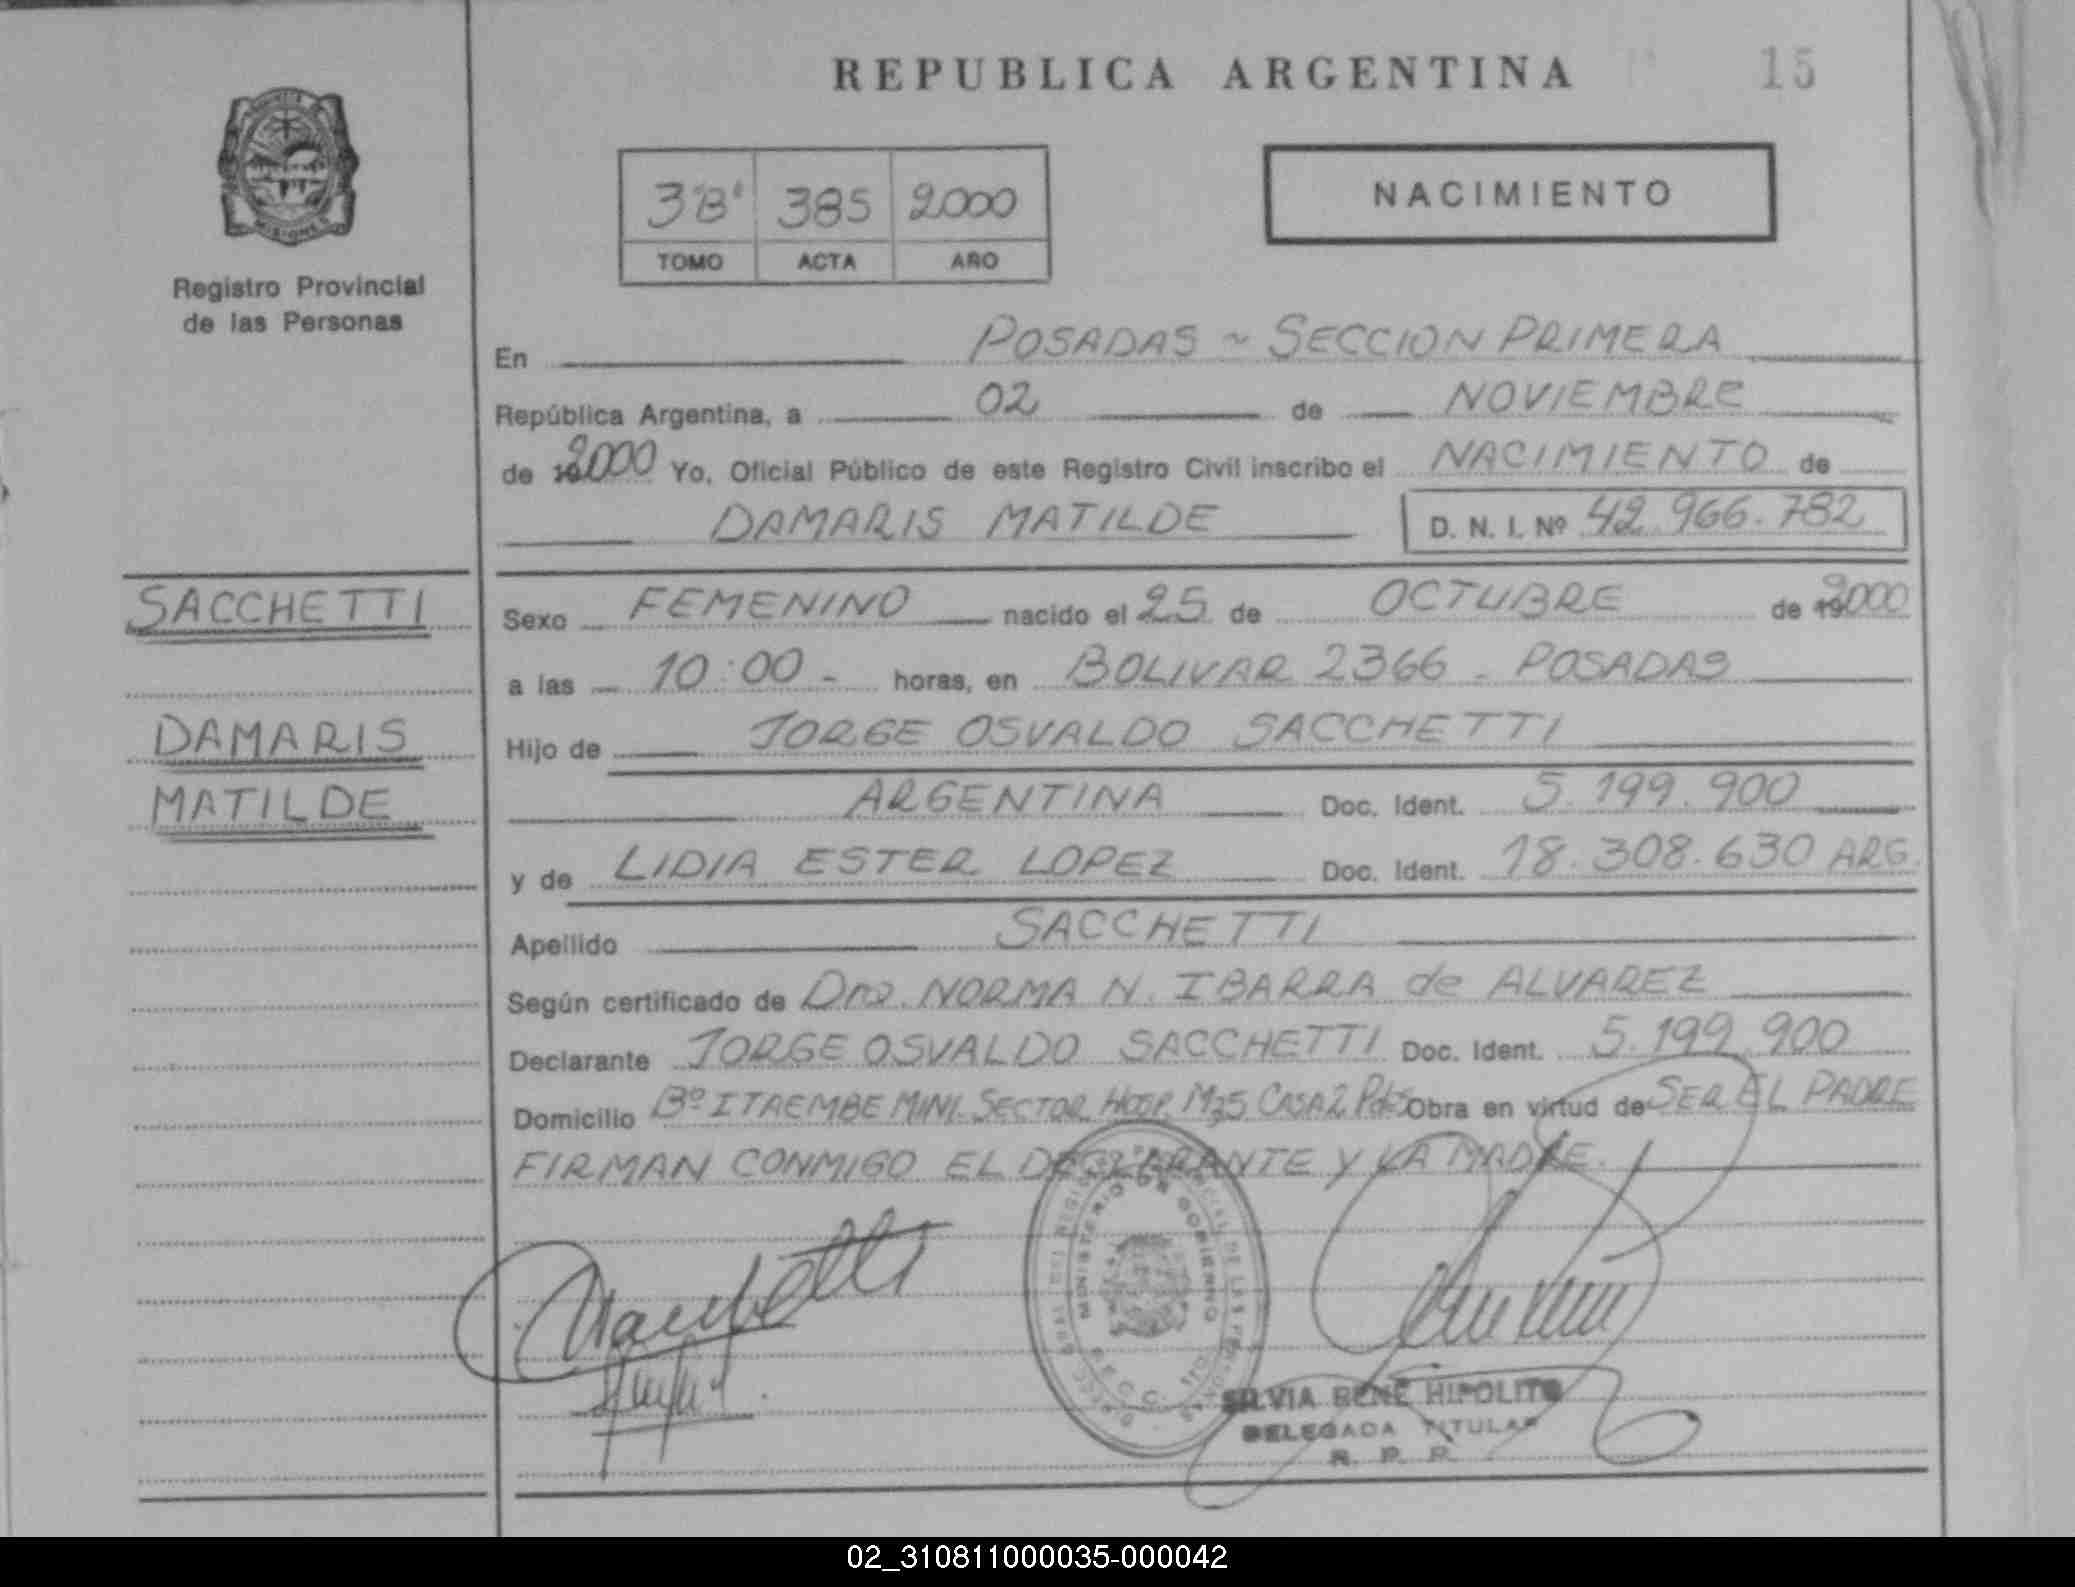 REPUBLICA ARGENTINA 15
3"B" 385 2000
TOMO ACTA AÑO
NACIMIENTO
MISIONES
Registro Provincial
de las Personas
En POSADAS ~ SECCION PRIMERA
República Argentina, a 02 de NOVIEMBRE
de 2000 Yo, Oficial Público de este Registro Civil inscribo el NACIMIENTO de
DAMARIS MATILDE D. N. I. Nº 42.966.782
SACCHETTI
DAMARIS
MATILDE
Sexo FEMENINO nacido el 25 de OCTUBRE de 2000
a las 10:00 - horas, en BOLIVAR 2366 - POSADAS
Hijo de JORGE OSVALDO SACCHETTI
ARGENTINA Doc. Ident. 5.199.900
y de LIDIA ESTER LOPEZ Doc. Ident. 18.308.630 ARG.
Apellido SACCHETTI
Según certificado de Dra. NORMA N. IBARRA de ALVAREZ
Declarante JORGE OSVALDO SACCHETTI Doc. Ident. 5.199.900
Domicilio Bº ITAEMBE MINI SECTOR HOSP. M35 CASA 2 Pdas Obra en virtud de SER EL PADRE
FIRMAN CONMIGO EL DECLARANTE Y LA MADRE.
MINISTERIO DE GOBIERNO
SILVIA RENE HIPOLITO
DELEGADA TITULAR
R. P. P.
02_310811000035-000042